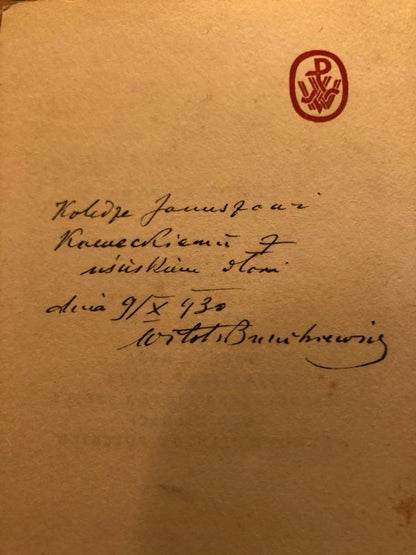 Koledze Januszowi
Kaweckiemu z
uściskiem dłoni
dnia 9/X 930
Witold Bunikiewicz